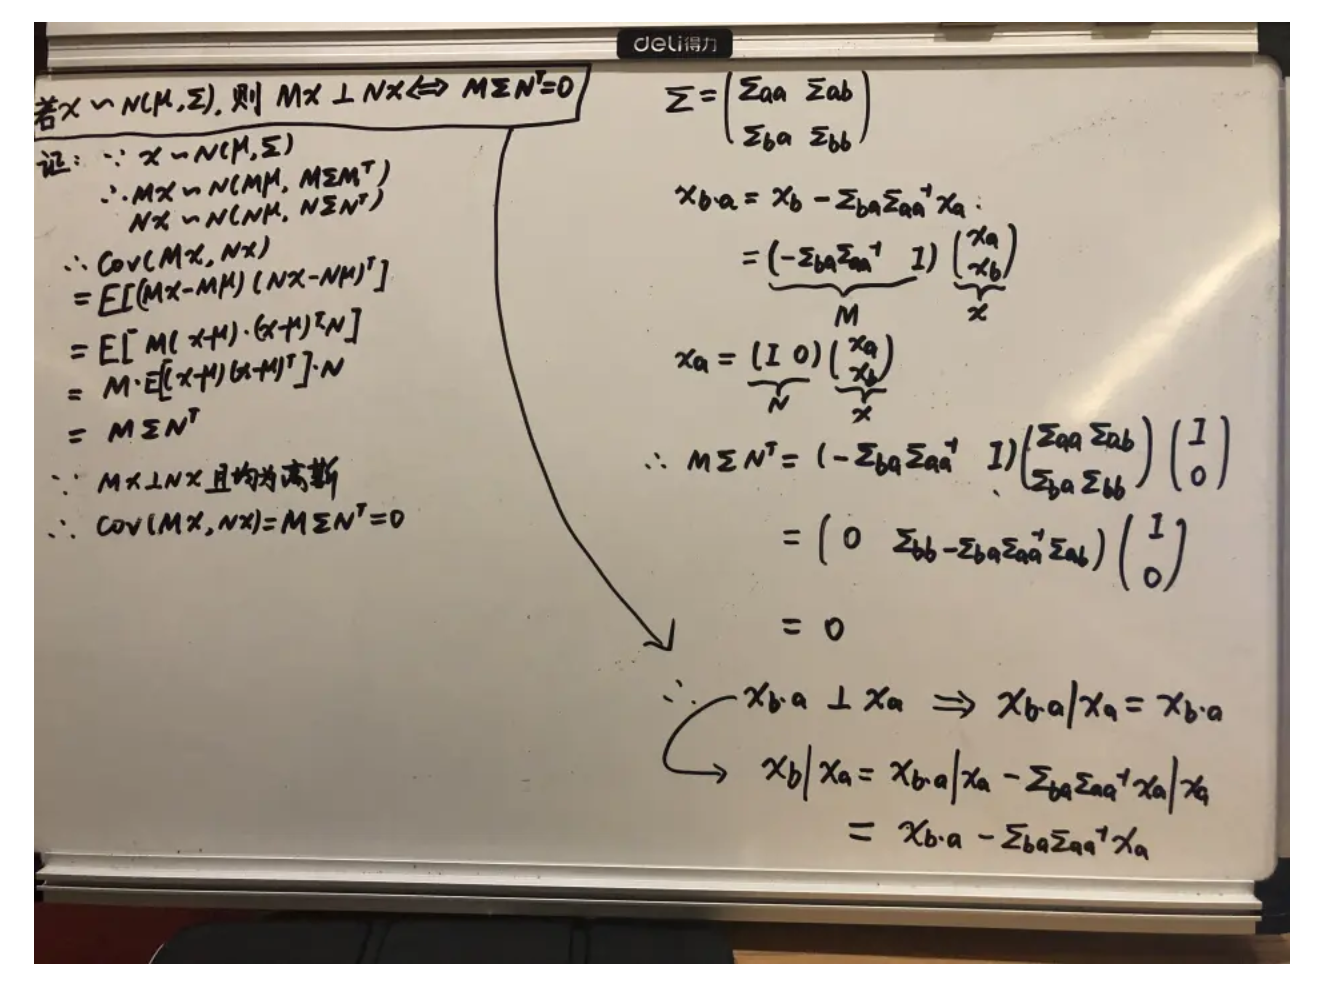 deli得力
若x ~ N(μ,Σ), 则 Mx ⊥ Nx ⟺ MΣNᵀ=0
证: ∵ x ~ N(μ,Σ)
∴ Mx ~ N(Mμ, MΣMᵀ)
Nx ~ N(Nμ, NΣNᵀ)
∴ Cov(Mx, Nx)
= E[(Mx-Mμ)(Nx-Nμ)ᵀ]
= E[M(x-μ)·(x-μ)ᵀN]
= M·E[(x-μ)(x-μ)ᵀ]·N
= MΣNᵀ
∵ Mx⊥Nx 且均为高斯
∴ Cov(Mx,Nx)=MΣNᵀ=0
Σ = (Σaa Σab
Σba Σbb)
x_b·a = x_b - Σba Σaa⁻¹ x_a.
= (-Σba Σaa⁻¹ I) (x_a
x_b)
M x
x_a = (I 0) (x_a
x_b)
N x
∴ MΣNᵀ = (-Σba Σaa⁻¹ I) (Σaa Σab
Σba Σbb) (I
0)
= (0 Σbb - Σba Σaa⁻¹ Σab) (I
0)
= 0
∴ x_b·a ⊥ x_a ⟹ x_b·a|x_a = x_b·a
x_b|x_a = x_b·a|x_a - Σba Σaa⁻¹ x_a|x_a
= x_b·a - Σba Σaa⁻¹ x_a